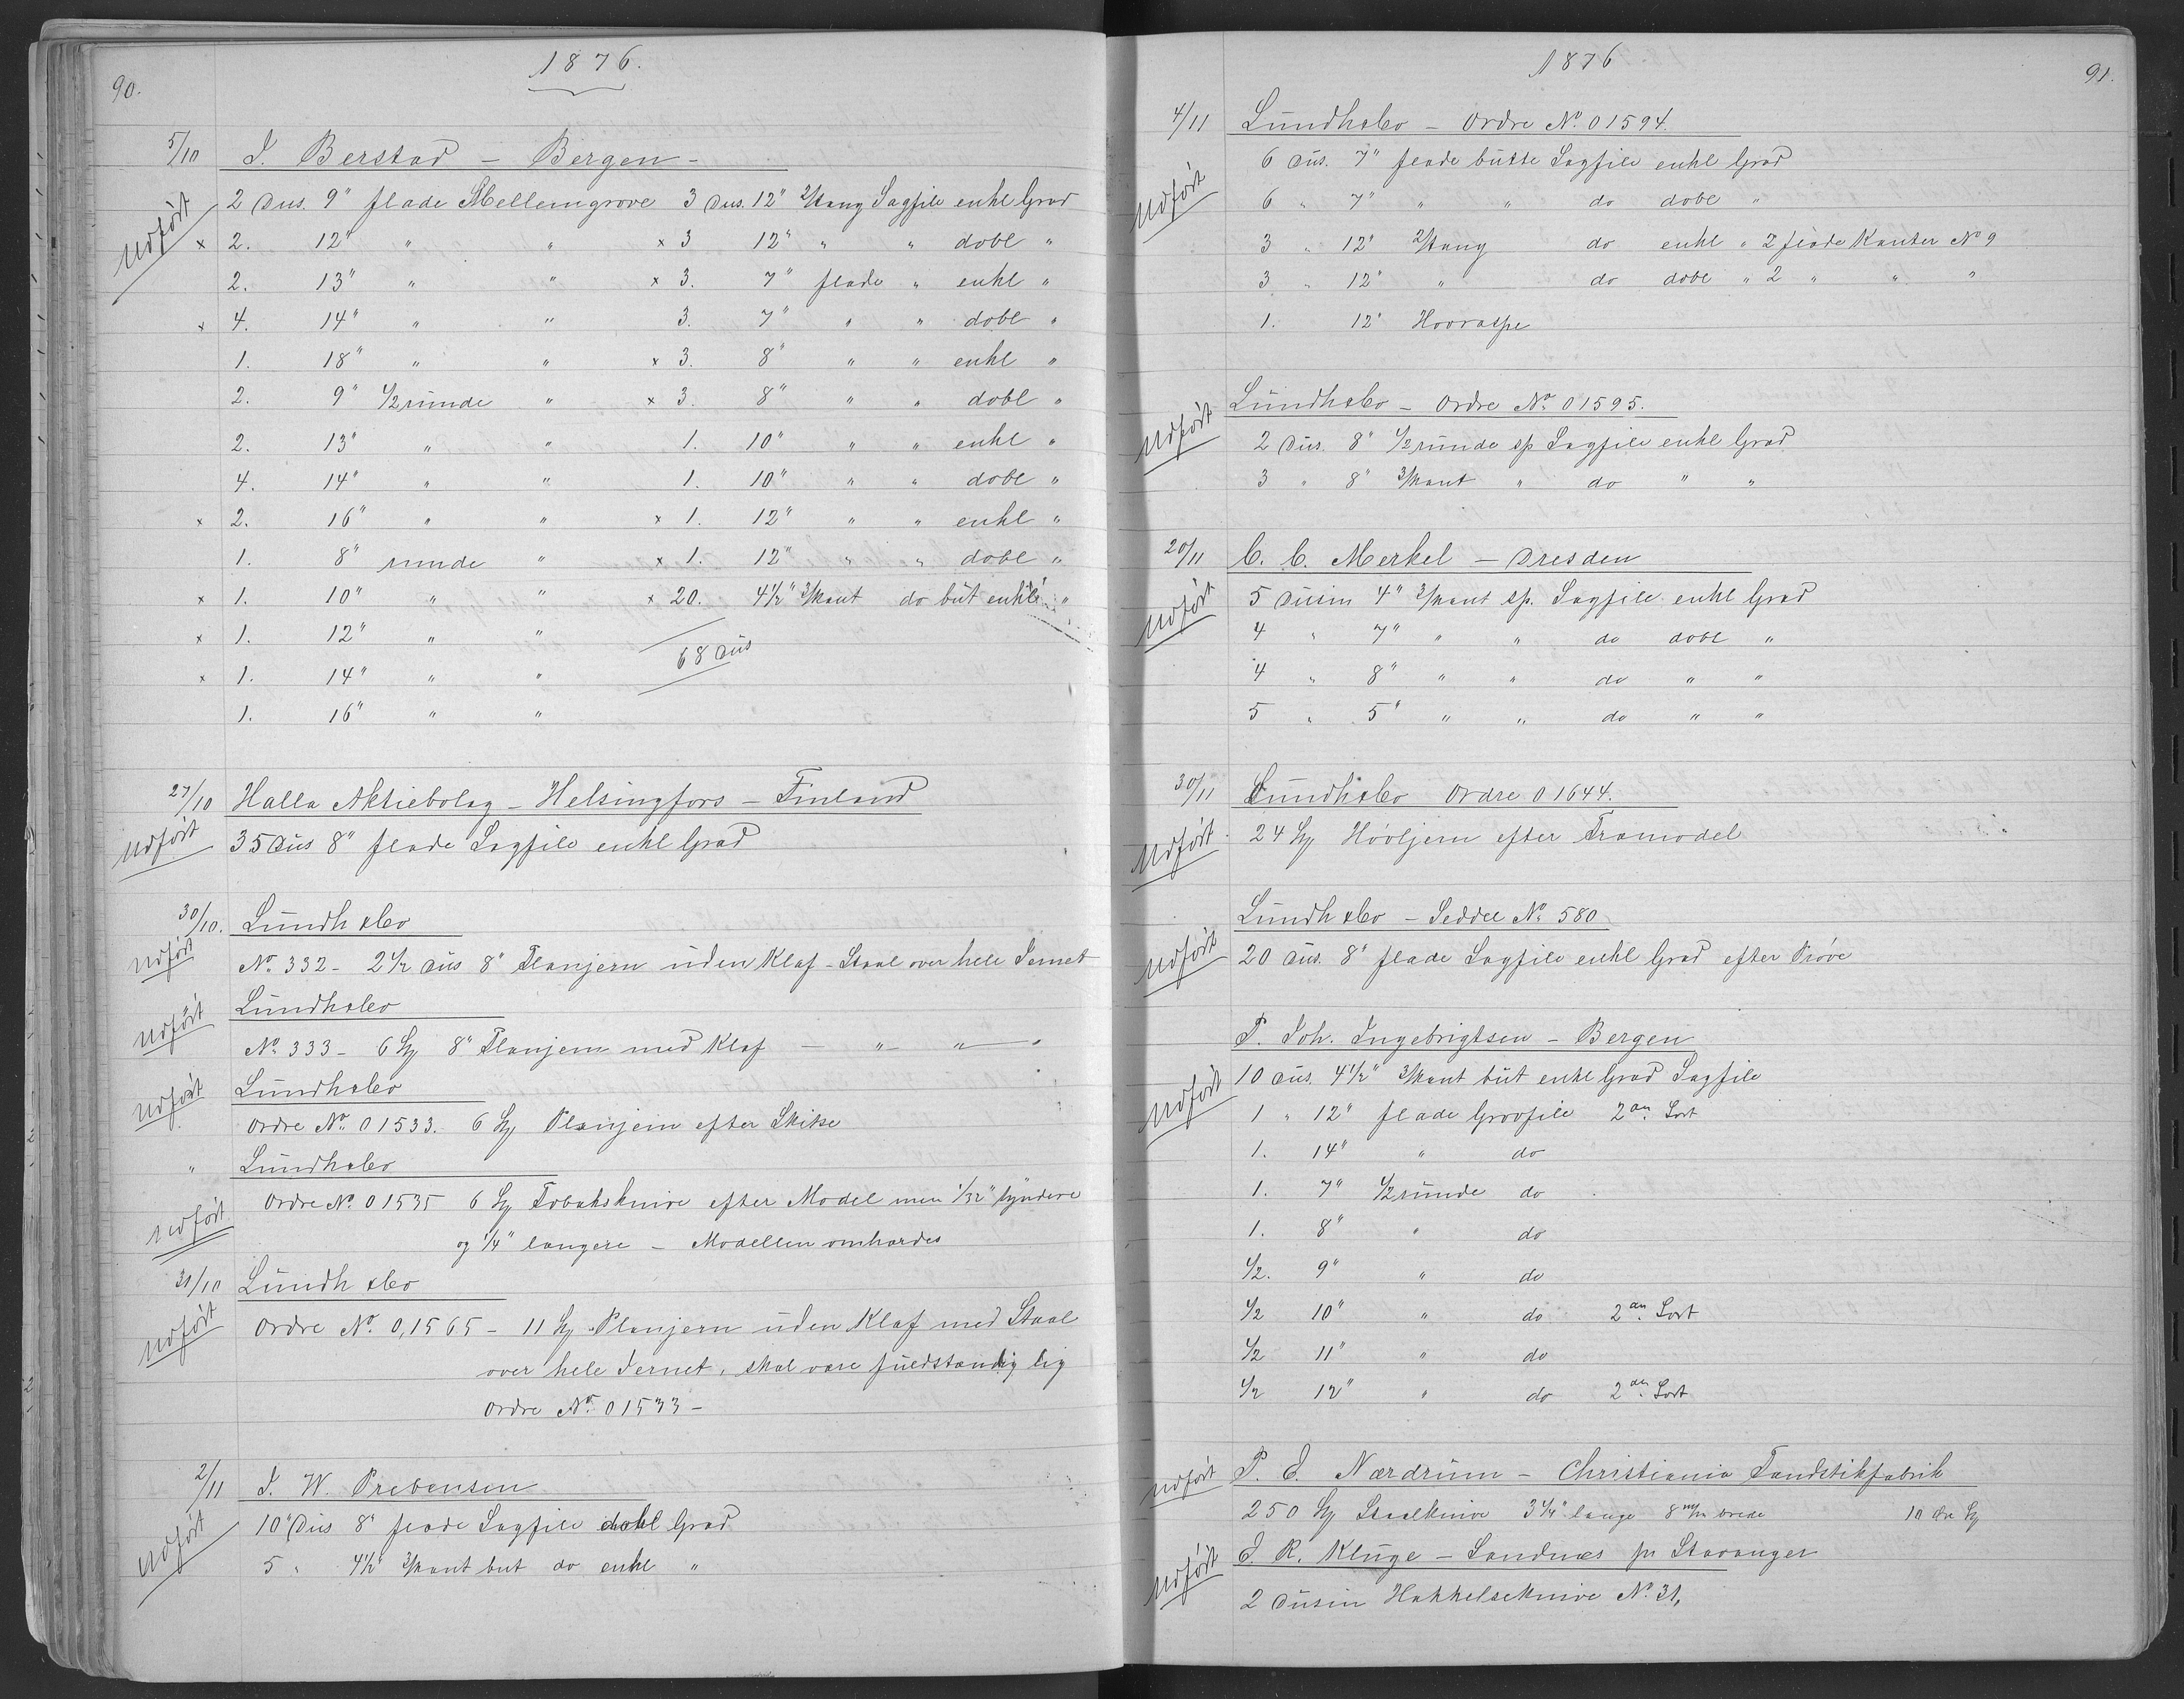 90.
1876.
5/10 J. Berstad - Bergen -
Udført 2 Dus. 9" flade Mellemgrove 3 Dus. 12" 2/kang Sagfile enkl Grad
x 2. 12" " " x 3 12" " " dobl "
2. 13" " " x 3. 7" flade " enkl "
x 4. 14" " " 3. 7" " " dobl "
1. 18" " " x 3. 8" " " enkl "
2. 9" 1/2 runde " x 3. 8" " " dobl "
2. 13" " " 1. 10" " " enkl "
4. 14" " " 1. 10" " " dobl "
x 2. 16" " " x 1. 12" " " enkl "
1. 8" runde " x 1. 12" " " dobl "
x 1. 10" " " x 20. 4 1/2" 3/kant do but enkl "
x 1. 12" " "
68 Dus
x 1. 14" " "
1. 16" " "
27/10 Halla Aktiebolag - Helsingfors - Finland
Udført 35 Dus 8" flade Sagfile enkl Grad
30/10. Lundh & Co
Udført No. 332 - 2 1/2 Dus 8" Planjern uden Klaf - Staal over hele Jernet
Lundh & Co
Udført No. 333 - 6 St 8" Planjern med Klaf - " - " - "
Lundh & Co
Udført Ordre No. 01533. 6 St Planjern efter Skitse
" Lundh & Co
Ordre No. 01535 6 St Tobaksknive efter Model men 1/32" tyndere
Udført og 1/4" længere - Modellen omhærdes
31/10 Lundh & Co
Udført Ordre No. 0,1565 - 11 St Planjern uden Klaf med Staal
over hele Jernet, skal være fuldstændig lig
Ordre No. 01533 -
2/11 J. W. Prebensen
Udført 10 Dus 8" flade Sagfile dobl Grad
5 " 4 1/2" 3/kant but do enkl "
1876
91.
4/11 Lundh & Co - Ordre No. 01594.
6 Dus. 7" flade butte Sagfile enkl Grad
Udført 6 " 7" " " do dobl "
3 " 12" 2/kang do enkl " 2 flade Kanter No 9
3 " 12" " do dobl " 2 " " "
1. 12" Hovraspe
Lundh & Co - Ordre No. 01595.
Udført 2 Dus. 8" 1/2 runde sp Sagfile enkl Grad
3 " 8" 3/kant " do " "
20/11 C. C. Merkel - Dresden
Udført 5 Dusin 4" 3/kant sp. Sagfile enkl Grad
4 " 7" " " do dobl "
4 " 8" " " do " "
5 " 5" " " do " "
30/11 Lundh & Co Ordre 01644.
Udført 24 St Høvljern efter Træmodel
Lundh & Co - Seddel No. 580
Udført 20 Dus. 8" flade Sagfile enkl Grad efter Prøve
P. Joh. Ingebrigtsen - Bergen
Udført 10 Dus. 4 1/2" 3/kant but enkl Grad Sagfile
1 " 12" flade Grovfile 2den Sort
1. 14" " do
1. 7" 1/2 runde do
1. 8" " do
1/2. 9" " do
1/2 10" " do 2den Sort
1/2 11" " do
1/2 12" " do 2den Sort
Udført P. E. Nærdrum - Christiania Tandstikfabrik
250 St Staalknive 3 1/4" lange 8 m/m brede 10 Øre St
Udført J. R. Kluge - Sandnæs pr Stavanger
2 Dusin Hakkelseknive No. 31,